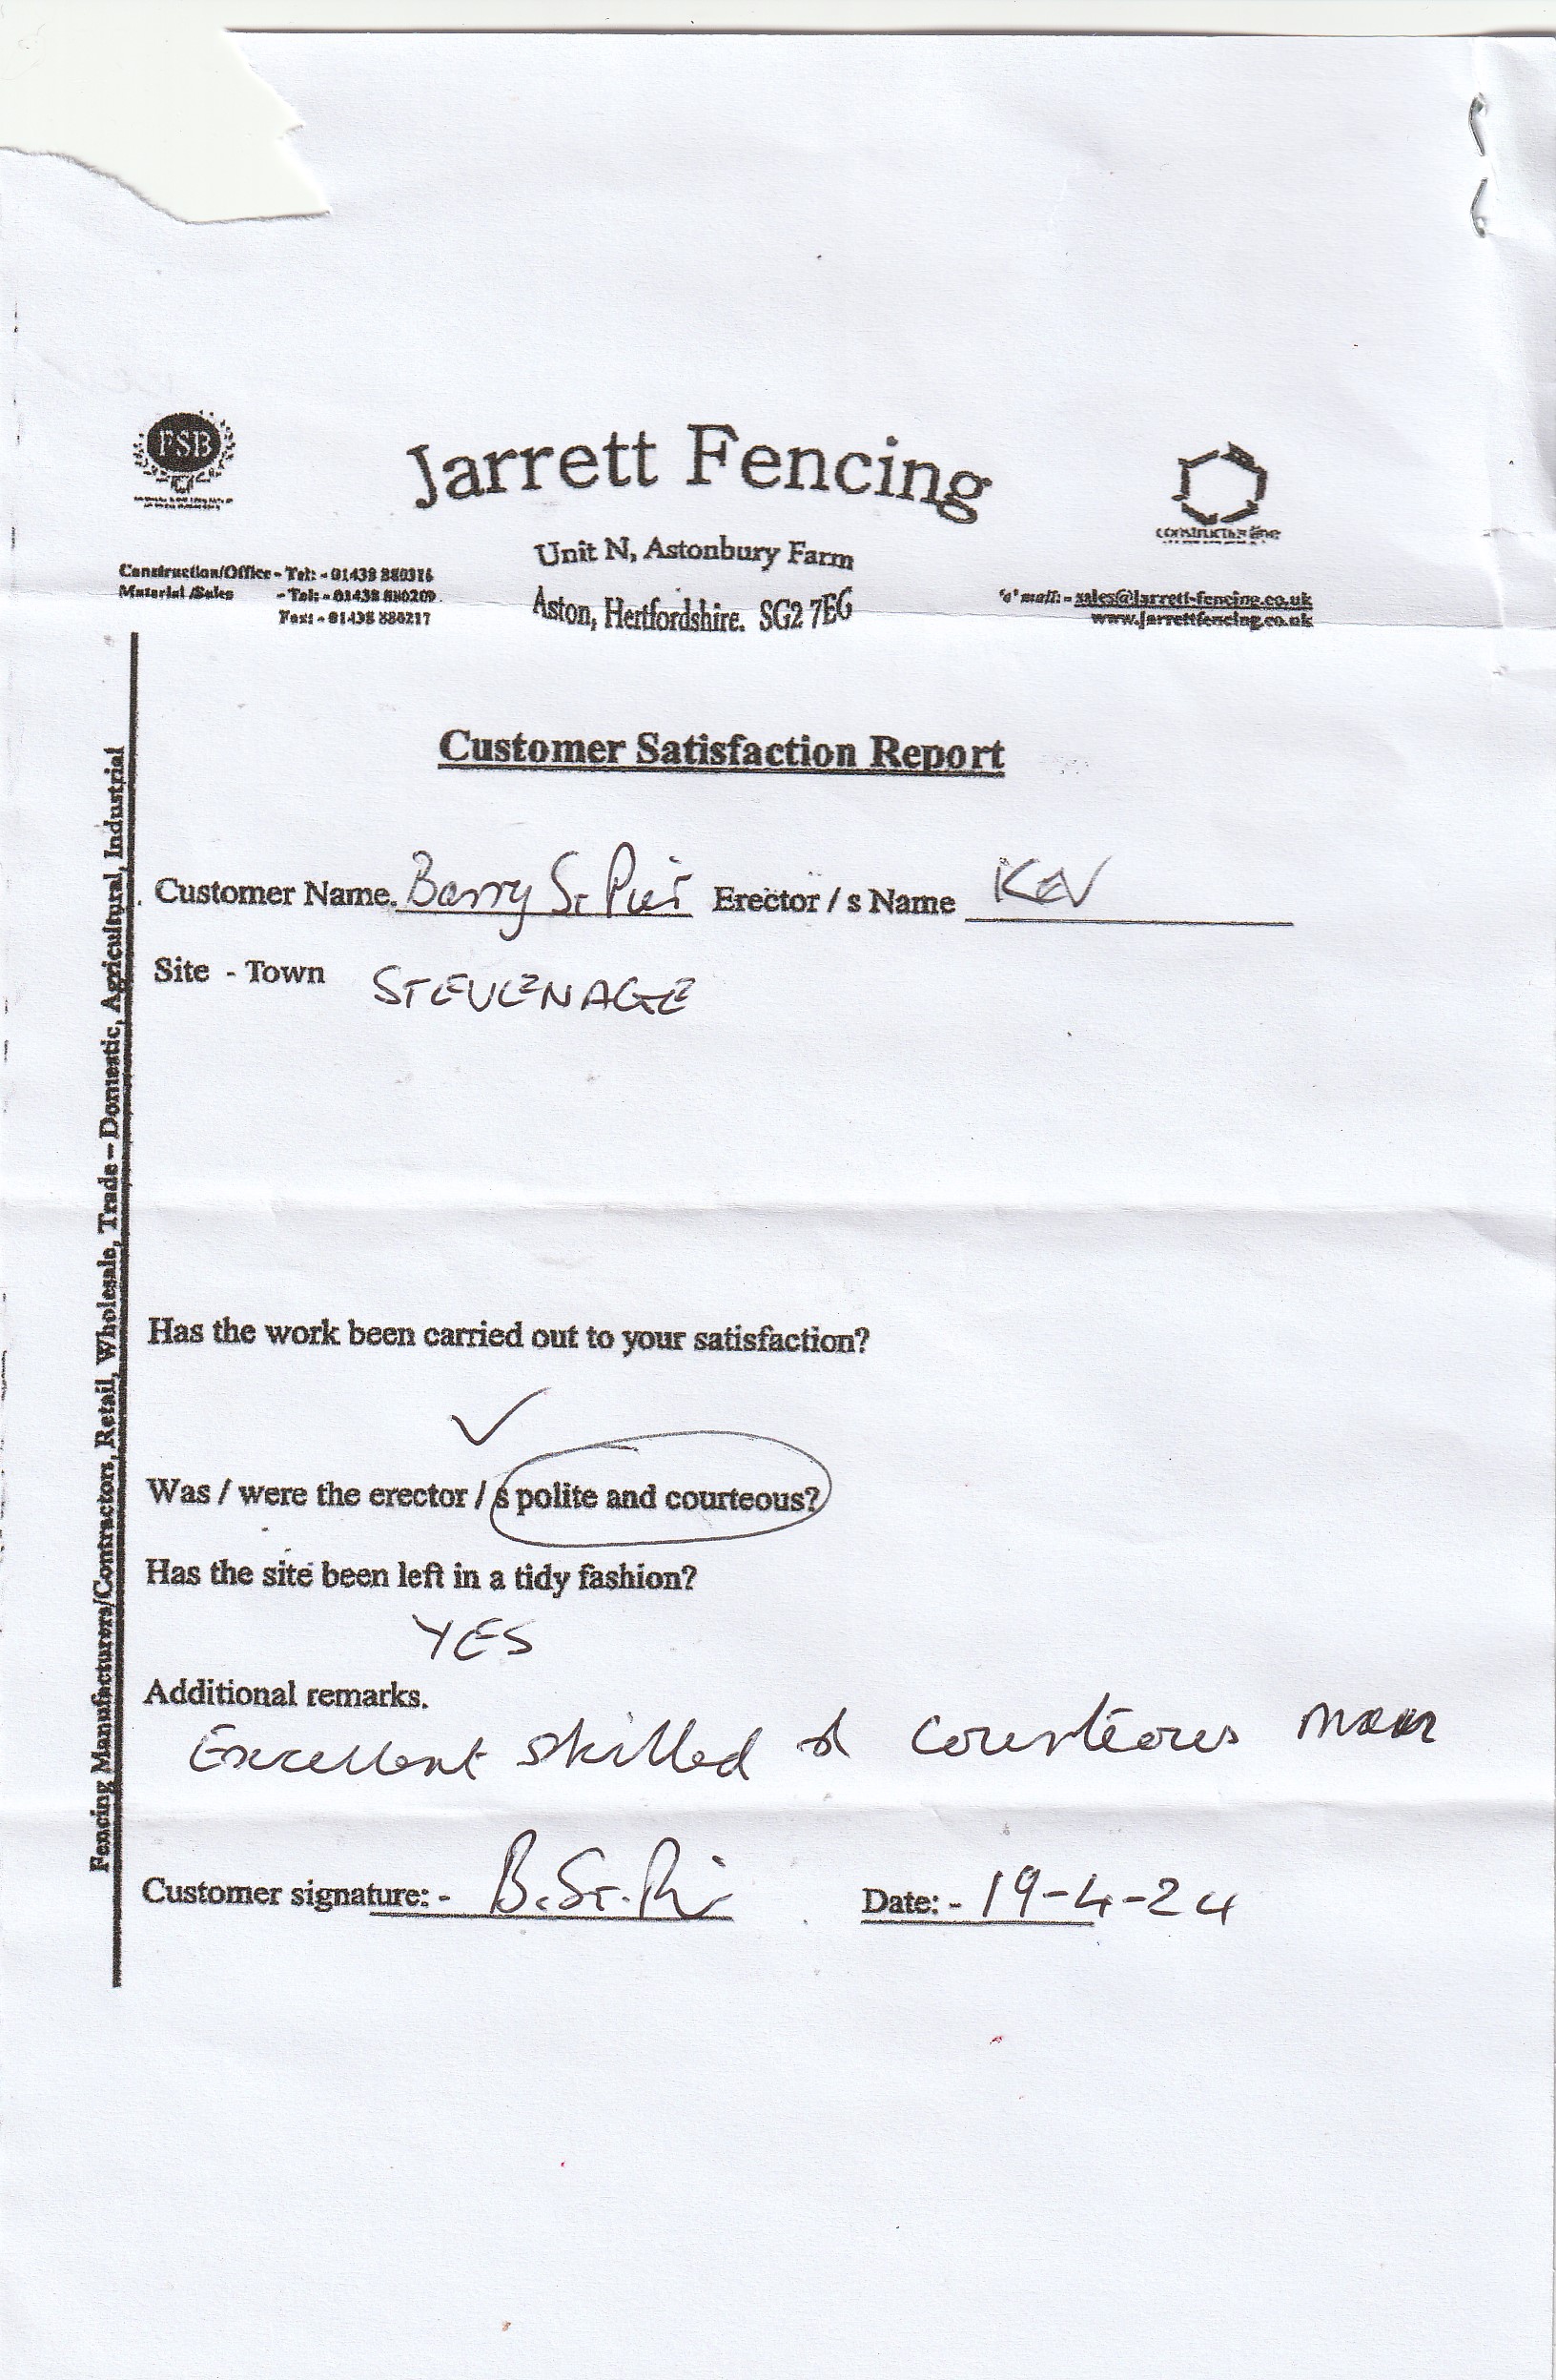 FSB
Jarrett Fencing
constructionline
Unit N, Astonbury Farm
Aston, Hertfordshire. SG2 7EG
Construction/Office - Tel: - 01438 880316
Material /Sales - Tel: - 01438 880209
Fax: - 01438 880217
'e' mail: - sales@jarrett-fencing.co.uk
www.jarrettfencing.co.uk
Fencing Manufacturers/Contractors, Retail, Wholesale, Trade – Domestic, Agricultural, Industrial
Customer Satisfaction Report
Customer Name. Barry St Erector / s Name KEV
Site - Town STEVENAGE
Has the work been carried out to your satisfaction?
✓
Was / were the erector / s polite and courteous?
Has the site been left in a tidy fashion?
YES
Additional remarks.
Excellent skilled & courteous man
Customer signature: - B. St. Date: - 19-4-24